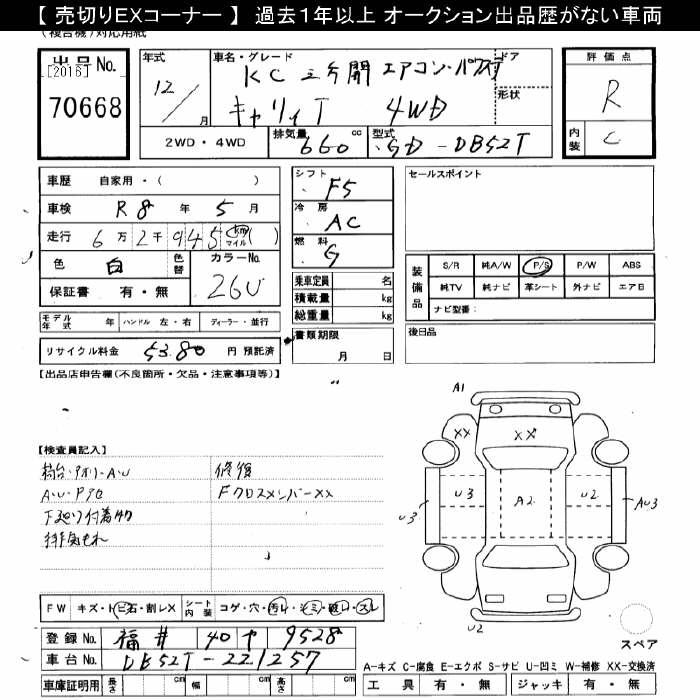 【 売切りEXコーナー 】 過去１年以上 オークション出品歴がない車両
(複合機)対応用紙
出品No.
[2016]
70668
年式
12/
月
車名・グレード
KC 三方開 エアコン・パワステ
キャリィT 4WD
ドア
形状
2WD・4WD
排気量
660
cc
型式
GD-DB52T
評価点
R
内装
C
車歴 自家用・( )
車検 R 8 年 5 月
走行 6万2千945 (km) マイル ( )
色 白 色替
カラーNo.
26U
保証書 有・無
モデル年式 年 ハンドル 左・右 ディーラー・並行
リサイクル料金 5380 円 預託済
シフト
F5
冷房
AC
燃料
G
乗車定員 名
積載量 kg
総重量 kg
書類期限
月 日
セールスポイント
装備品
S/R 純A/W P/S P/W ABS
純TV 純ナビ 革シート 外ナビ エアB
ナビ型番:
後日品
【出品店申告欄(不良箇所・欠品・注意事項等)】
【検査員記入】
荷台・アオリ-A・U
A・U・Pアセ
下廻り付着物
排気もれ
修復
FクロスメンバーXX
A1
XX
XX
U3
U3
A2
U2
AU3
U2
スペア
FW キズ・トビ石・割レX シート内装 コゲ・穴・汚レ・シミ・破レ・スレ
登録No. 福井 40 ヤ 9528
車台No. DB52T-221257
車庫証明用 長さ cm 幅 cm 高さ cm
A-キズ C-腐食 E-エクボ S-サビ U-凹ミ W-補修 XX-交換済
工具 有・無 ジャッキ 有・無